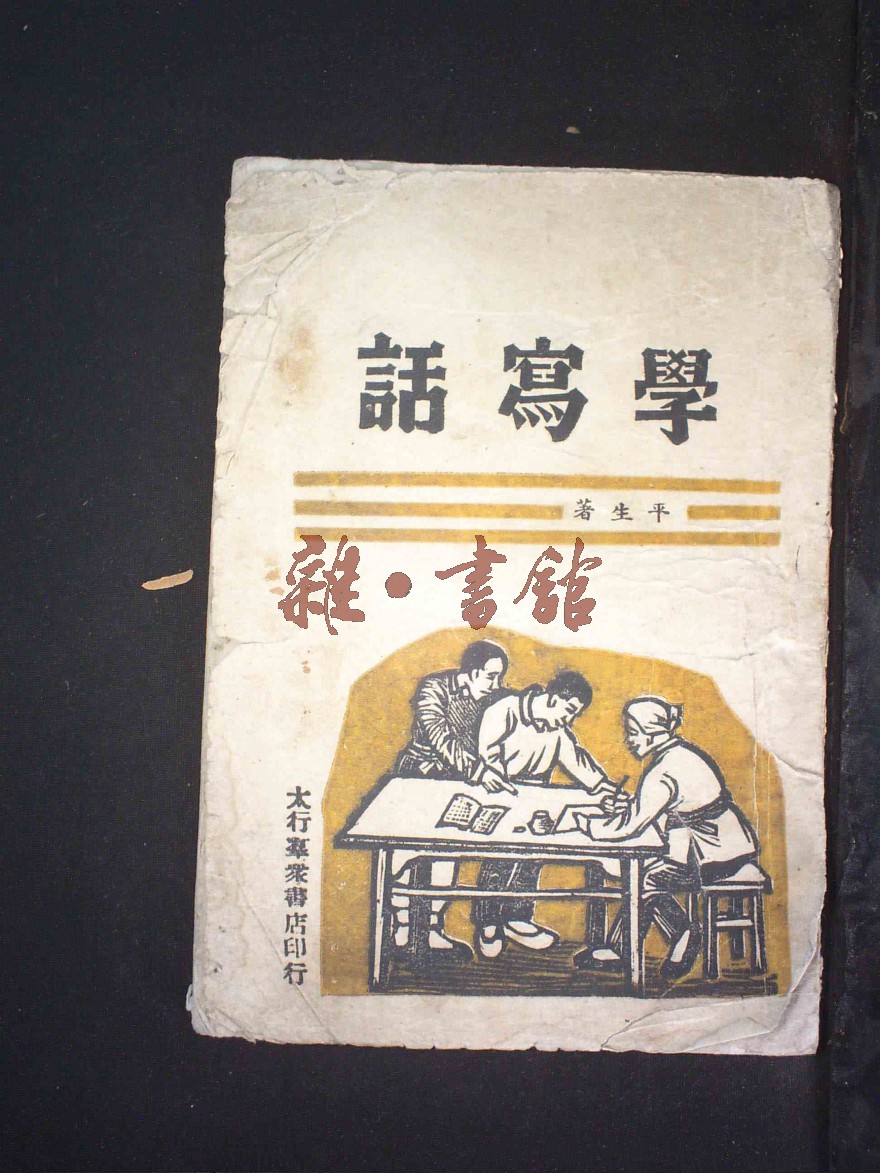 學寫話
平生著
雜·書館
太行羣衆書店印行